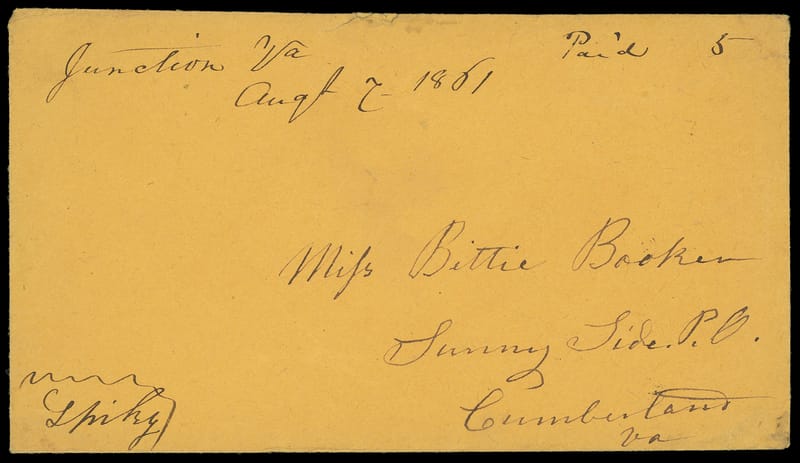 Junction Va Paid 5
Augt 7 1861
Miss Bittie Booker
Sunny Side. P.O.
Cumberland
Va